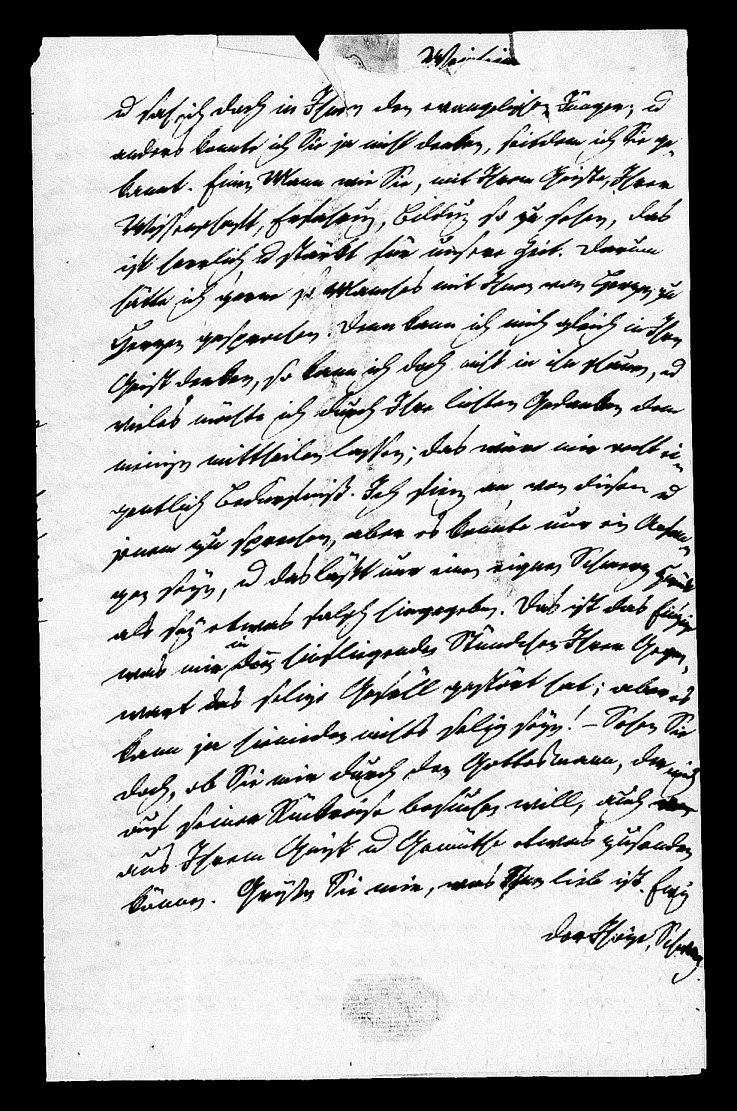 u sah ich doch in Ihnen den evangelischen Jünger, u
anders konnte ich Sie ja nicht denken, seitdem ich Sie ge-
kannt. Einen Mann wie Sie, mit Ihrem Geiste, Ihrer
Wissenschaft, Erfahrung, Bildung so zu sehen, das
ist herrlich u stärkt für unsere Zeit. Darum
hätte ich gerne so Manches mit Ihnen von Herzen zu
Herzen gesprochen. Denn kann ich mich gleich in Ihren
Geist denken, so kann ich doch nicht in ihn schauen, u
vieles möchte ich durch Ihre lichten Gedanken den
meinen mittheilen lassen; das wäre mir recht ei-
gentlich Bedürfniß. Ich fing an, von diesem u
jenem zu sprechen, aber es konnte nur ein Anfan-
gen seyn, u das läßt nur einen eignen Schmerz
als sey etwas falsch hingegeben. Das ist das Einzige
was mir in den hinfliegenden Stündchen Ihrer Gegen-
wart das selige Gefühl gestört hat; aber es
kann ja hienieden nichts selig seyn! – Sehen Sie
doch, ob Sie mir durch den Gottesmann, der mich
auf seiner Rückreise besuchen will, auch
aus Ihrem Geist u Gemüthe etwas zusenden
können. Grüßen Sie mir, was Ihnen lieb ist. Ewig
der Ihrige, Schwarz